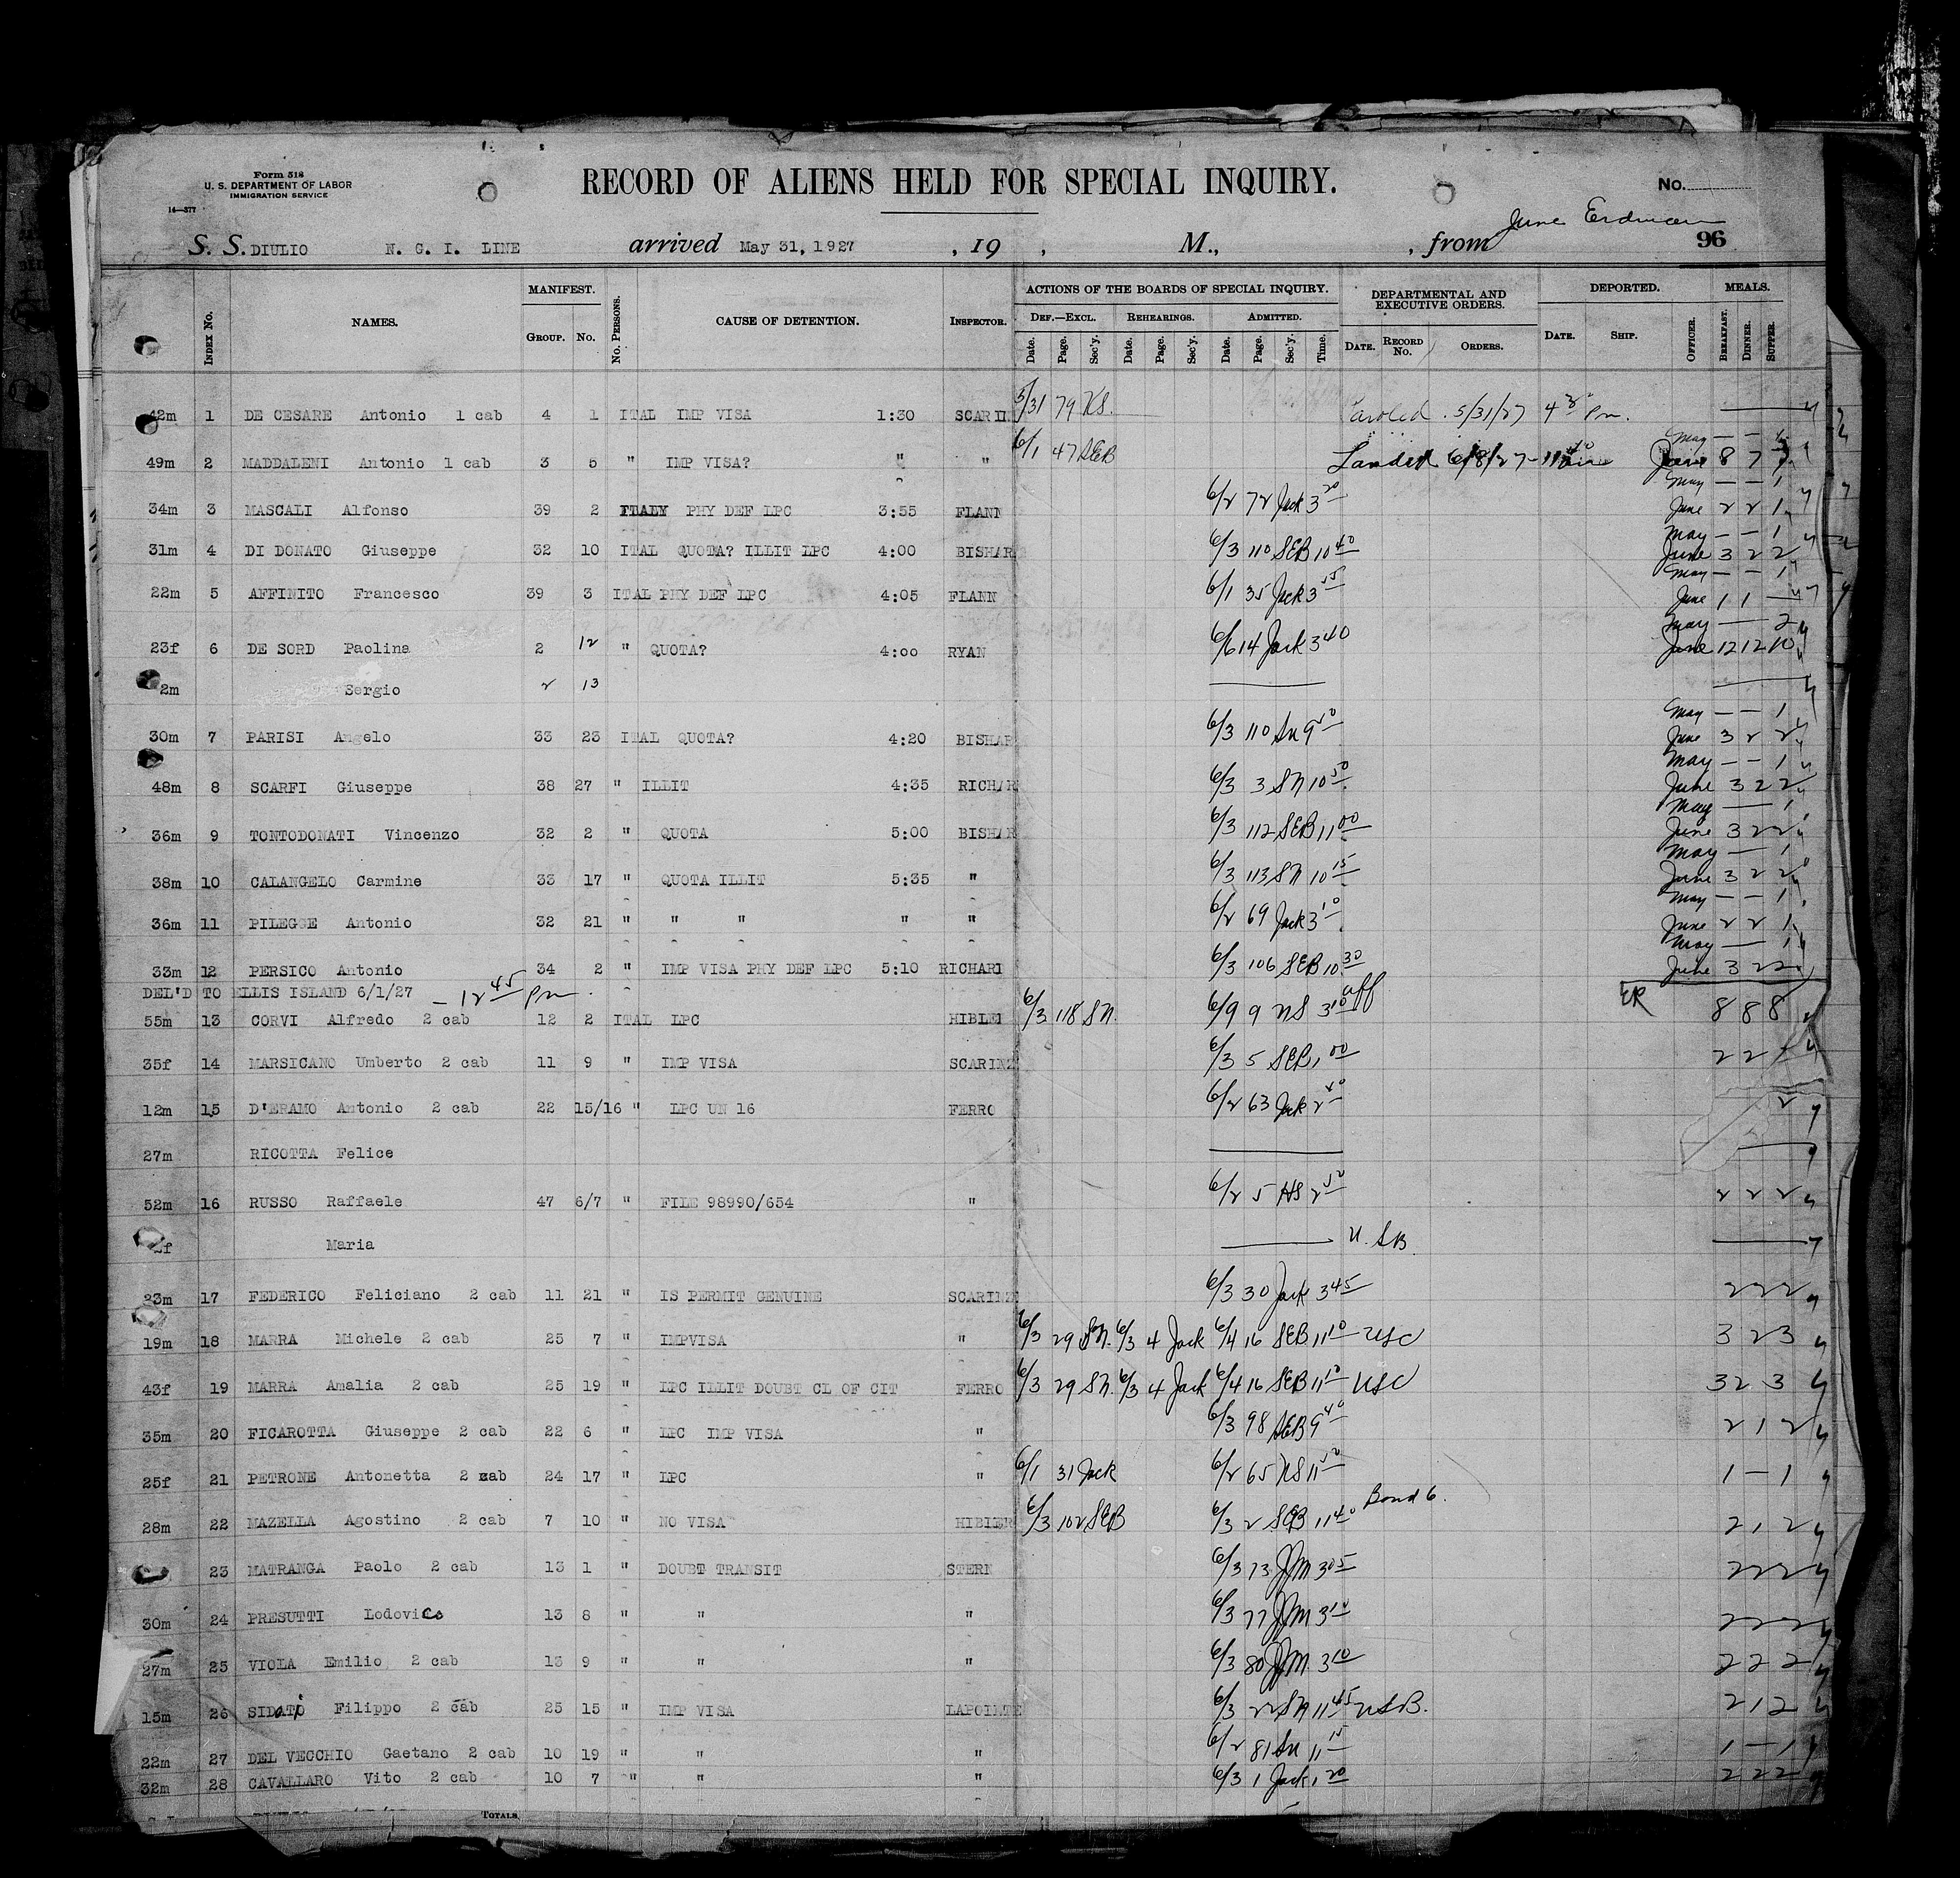 Form 518
U. S. DEPARTMENT OF LABOR
IMMIGRATION SERVICE
14—377
RECORD OF ALIENS HELD FOR SPECIAL INQUIRY.
No.
June Erdman
S. S. DIULIO N. G. I. LINE arrived May 31, 1927 , 19 , M., , from 96
INDEX No. NAMES. MANIFEST. GROUP. No. No. PERSONS. CAUSE OF DETENTION. INSPECTOR. ACTIONS OF THE BOARDS OF SPECIAL INQUIRY. DEF.—EXCL. Date. Page. Sec'y. REHEARINGS. Date. Page. Sec'y. ADMITTED. Date. Page. Sec'y. Time. DEPARTMENTAL AND EXECUTIVE ORDERS. DATE. RECORD No. ORDERS. DEPORTED. DATE. SHIP. OFFICER. MEALS. BREAKFAST. DINNER. SUPPER.
42m 1 DE CESARE Antonio 1 cab 4 1 ITAL IMP VISA 1:30 SCARII 5/31 79 KS. Paroled 5/31/27 4 pm.
49m 2 MADDALENI Antonio 1 cab 3 5 " IMP VISA? " " 6/1 47 SEB Landed 6/8/27 June 8 7
34m 3 MASCALI Alfonso 39 2 ITALY PHY DEF LPC 3:55 FLANN 6/2 72 Jack 3 20 May — — 1 June 2 2 1
31m 4 DI DONATO Giuseppe 32 10 ITAL QUOTA? ILLIT LPC 4:00 BISHAR 6/3 110 SEB 10 40 May — — 1 June 3 2 2
22m 5 AFFINITO Francesco 39 3 ITAL PHY DEF LPC 4:05 FLANN 6/1 35 Jack 3 15 May — — 1 June 1 1 —
23f 6 DE SORD Paolina 2 12 " QUOTA? 4:00 RYAN 6/6 14 Jack 3 40 May — — 2 June 12 12 10
2m Sergio 2 13
30m 7 PARISI Angelo 33 23 ITAL QUOTA? 4:20 BISHAR 6/3 110 SN 9 50 May — — 1 June 3 2 2
48m 8 SCARFI Giuseppe 38 27 " ILLIT 4:35 RICHAR 6/3 3 SN 10 50 May — — 1 June 3 2 2
36m 9 TONTODONATI Vincenzo 32 2 " QUOTA 5:00 BISHAR 6/3 112 SEB 11 00 May — 1 June 3 2 2
38m 10 CALANGELO Carmine 33 17 " QUOTA ILLIT 5:35 " 6/3 113 SN 10 15 May — 1 June 3 2 2
36m 11 PILEGGE Antonio 32 21 " " " " " 6/2 69 Jack 3 10 May — — 1 June 2 2 1
33m 12 PERSICO Antonio 34 2 " IMP VISA PHY DEF LPC 5:10 RICHARI 6/3 106 SEB 10 30 May — 1 June 3 2 2
DEL'D TO ELLIS ISLAND 6/1/27 — 12 45 pm.
55m 13 CORVI Alfredo 2 cab 12 2 ITAL LPC HIBLEI 6/3 118 SN. 6/9 9 NS 3 10 aff ER 8 8 8
35f 14 MARSICANO Umberto 2 cab 11 9 " IMP VISA SCARINZ 6/3 5 SEB 1 00 2 2 —
12m 15 D'ERAMO Antonio 2 cab 22 15/16 " LPC UN 16 FERRO 6/2 63 Jack 2 40 2
27m RICOTTA Felice
52m 16 RUSSO Raffaele 47 6/7 " FILE 98990/654 " 6/2 5 HS 2 50 2 2 2
f Maria U. S B.
23m 17 FEDERICO Feliciano 2 cab 11 21 " IS PERMIT GENUINE SCARINZ 6/3 30 Jack 3 45 2 2 2
19m 18 MARRA Michele 2 cab 25 7 " IMPVISA " 6/3 29 SN. 6/3 4 Jack 6/4 16 SEB 11 10 USC 3 2 3
43f 19 MARRA Amalia 2 cab 25 19 " LPC ILLIT DOUBT CL OF CIT FERRO 6/3 29 SN. 6/3 4 Jack 6/4 16 SEB 11 10 USC 3 2 3
35m 20 FICAROTTA Giuseppe 2 cab 22 6 " LPC IMP VISA " 6/3 98 SEB 9 40 2 1 2
25f 21 PETRONE Antonetta 2 cab 24 17 " LPC " 6/1 31 Jack 6/2 65 NS 11 50 1 — 1
28m 22 MAZELLA Agostino 2 cab 7 10 " NO VISA HIBLER 6/3 102 SEB 6/3 2 SEB 11 40 Bond 6. 2 1 2
23 MATRANGA Paolo 2 cab 13 1 " DOUBT TRANSIT STERN 6/3 73 JJM 3 05 2 2 2
30m 24 PRESUTTI Lodovico 13 8 " " " 6/3 77 JJM 3 10 2 2 2
27m 25 VIOLA Emilio 2 cab 13 9 " " " 6/3 80 JJM 3 10 2 2 2
15m 26 SIDATO Filippo 2 cab 25 15 " IMP VISA LAPOINTE 6/3 22 SN 11 45 USB. 2 1 2
22m 27 DEL VECCHIO Gaetano 2 cab 10 19 " " " 6/2 81 SN 11 15 1 — 1
32m 28 CAVALLARO Vito 2 cab 10 7 " " " 6/3 1 Jack 1 20 2 2 2
TOTALS